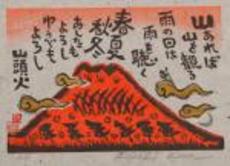 山あれば
山を観る
雨の日は
雨を聴く
春夏
秋冬
あしたも
よろし
ゆふべも
よろし
山頭火